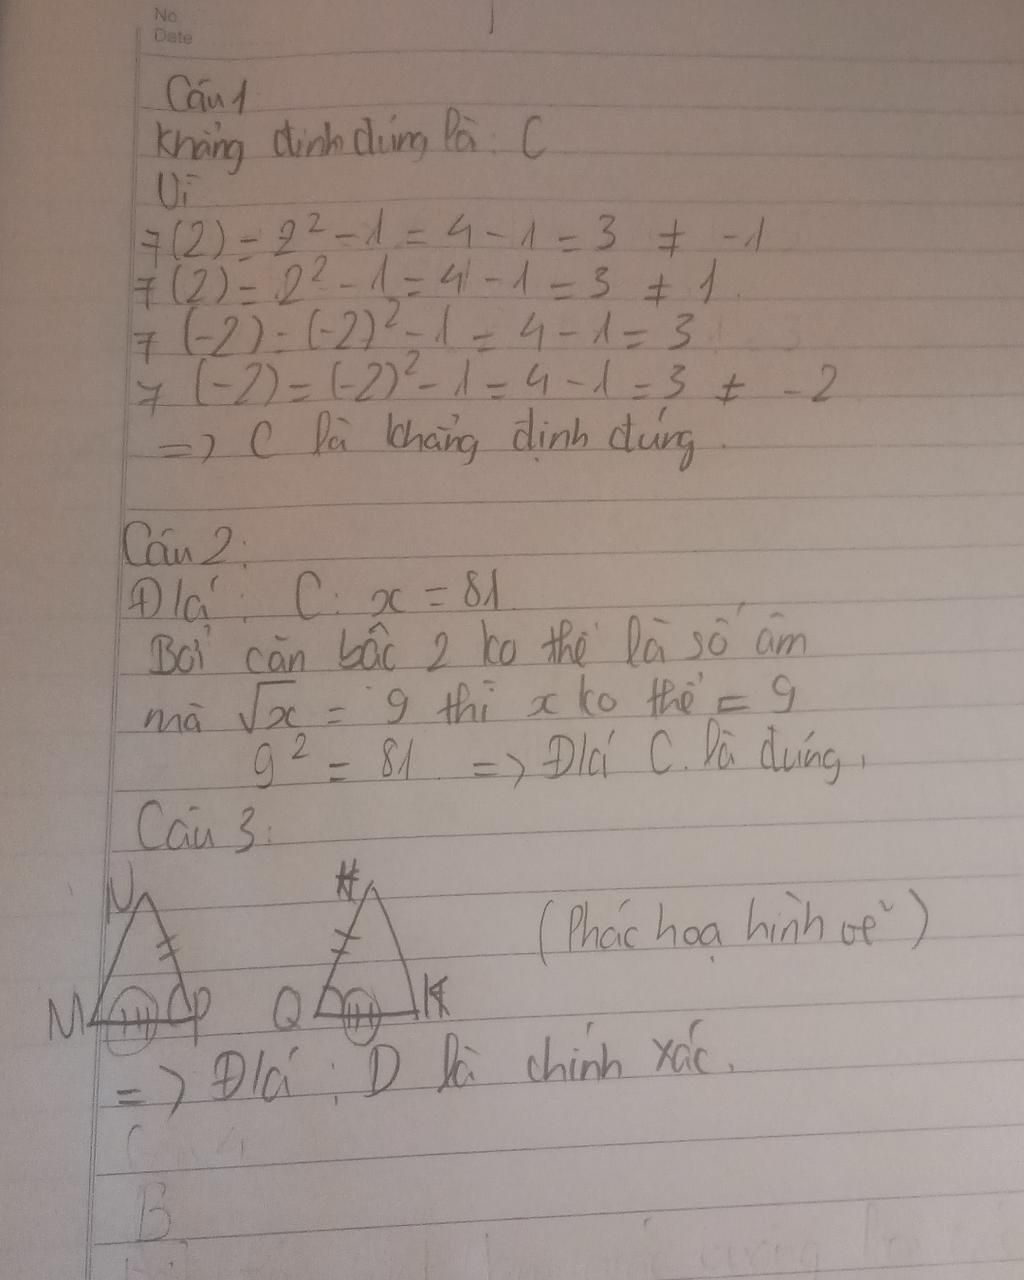 No
Date
Câu 1
Khẳng định đúng là: C
Vì
f(2) = 2² - 1 = 4 - 1 = 3 ≠ -1
f(2) = 2² - 1 = 4 - 1 = 3 ≠ 1
f(-2) = (-2)² - 1 = 4 - 1 = 3
f(-2) = (-2)² - 1 = 4 - 1 = 3 ≠ -2
=> C là khẳng định đúng.
Câu 2:
Đ/á: C: x = 81
Bởi căn bậc 2 ko thể là số âm
mà √x = 9 thì x ko thể = 9
9² = 81 => Đ/á C. là đúng.
Câu 3:
N H
(Phác hoạ hình vẽ)
M P Q K
=> Đ/á: D là chính xác.
B